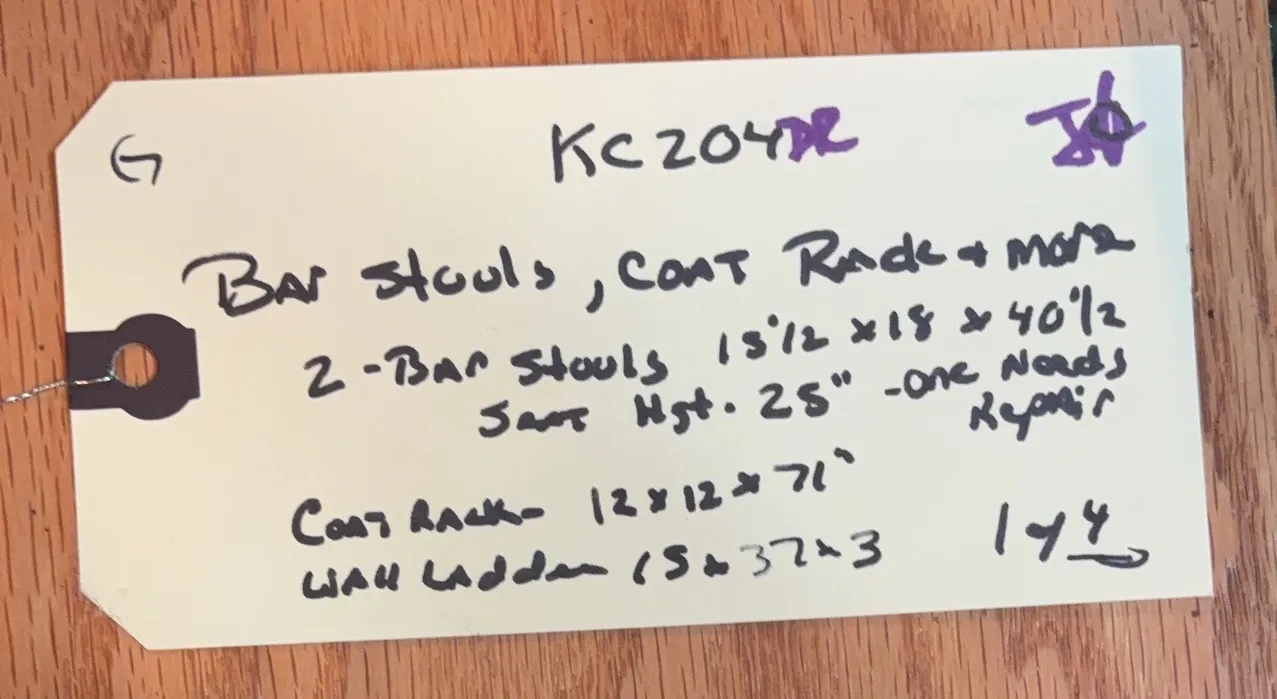 G KC204DR
Bar Stools, Coat Rack + more
2 - Bar Stools 15 1/2 x 18 x 40 1/2
Seat Hgt. 25" - one Needs
Repair
Coat Rack - 12 x 12 x 71"
Wall Ladder 15 x 37 x 3
1 of 4